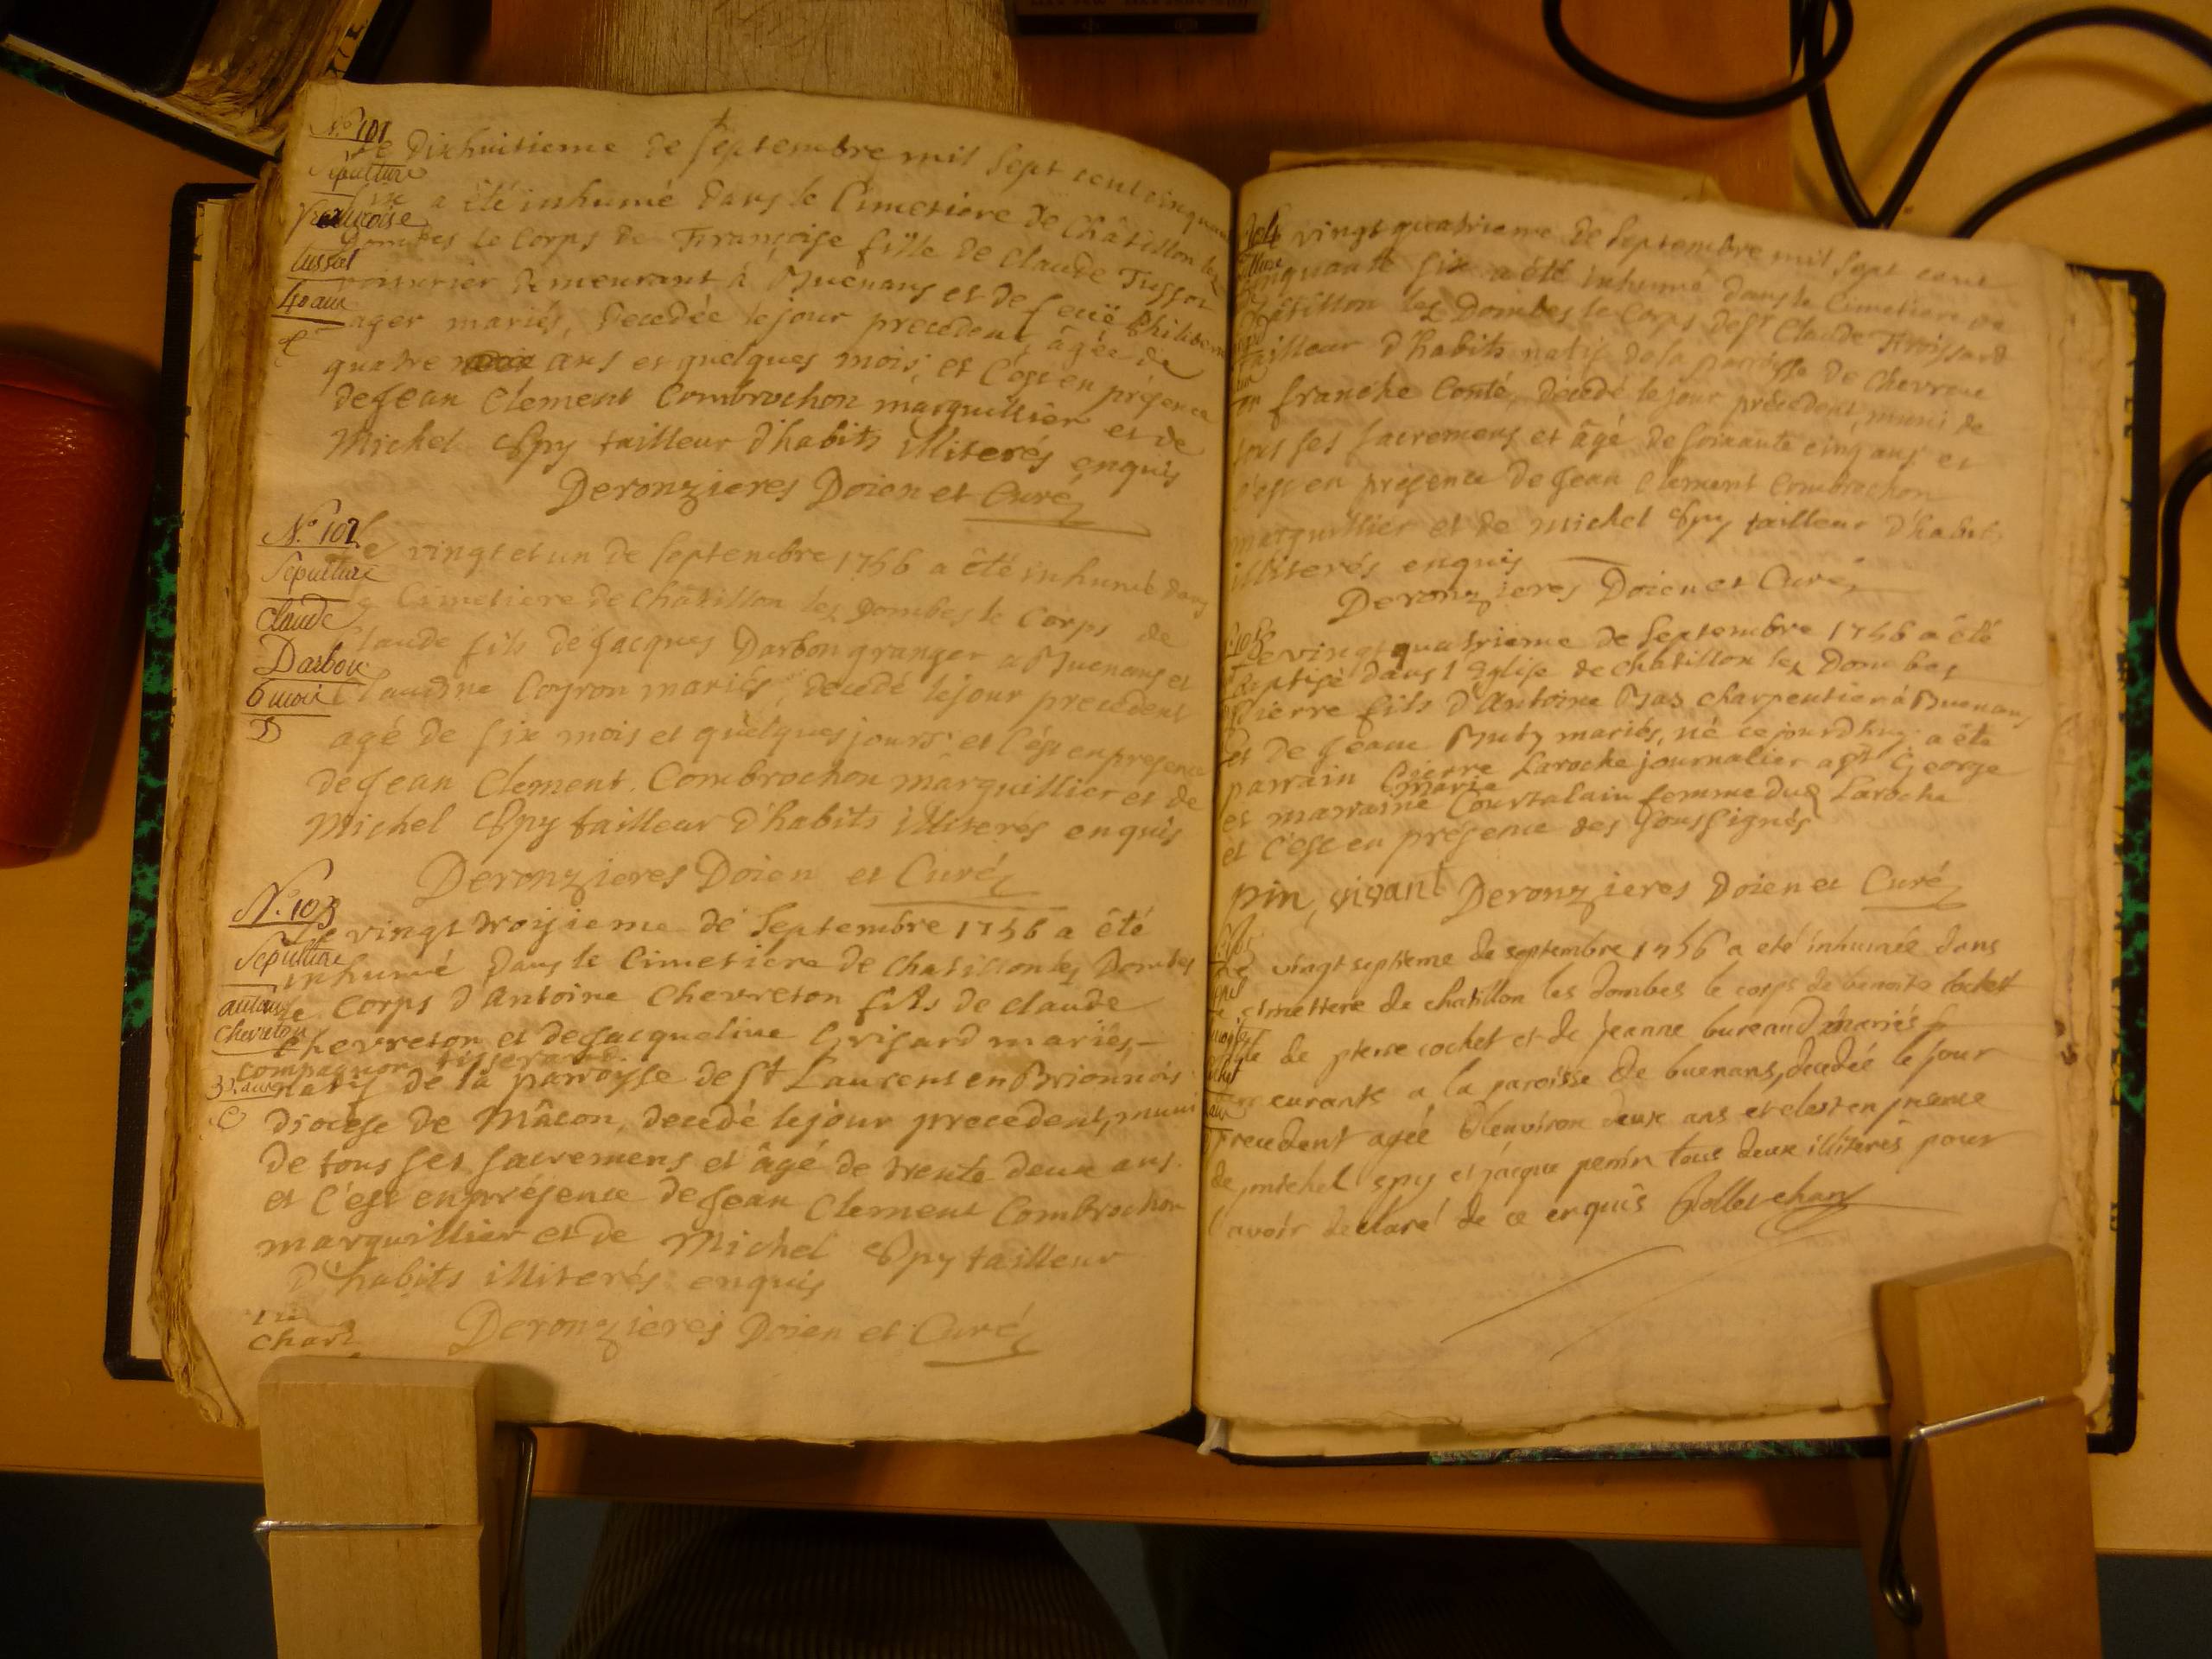 N.º 101
Sepulture
françoise
tussot
4 ans
Le Dixhuitieme de Septembre mil sept cent cinquante
six a été inhumé dans le Cimetiere de Châtillon lez
Dombes le Corps de Françoise fille de Claude Tussot
demeurant à Buenans et de feuë Philiberte
mariés, decedée le jour precedent, âgée de
quatre ans et quelques mois, et c'est en présence
de Jean Clement Combrochon marguillier et de
Michel Spy tailleur d'habits illiterés enquis
Deronzieres Doien et Curé
N.º 102
Sepulture
claude
Darbon
6 mois
Le vingt et un de Septembre 1756 a été inhumé dans
le Cimetiere de Châtillon lez Dombes le Corps de
Claude fils de Jacques Darbon granger a Buenans et
Claudine Coyron mariés, decedé le jour precedent
agé de six mois et quelques jours et c'est en presence
de Jean Clement Combrochon marguillier et de
Michel Spy tailleur d'habits illiterés enquis
Deronzieres Doien et Curé
N.º 103
Sepulture
antoine
chevreton
32 ans
Le vingt troisieme de Septembre 1756 a été
inhumé dans le Cimetiere de Chatillon lez Dombes
le Corps d'Antoine Chevreton fils de Claude
Chevreton et de Jacqueline Grisard mariés,
compagnon tisserand
natif de la parroysse de St Laurens en Brionnois
Diocèse de Mâcon, decedé le jour precedent, muni
de tous ses sacremens et âgé de trente deux ans.
et c'est en présence de Jean Clement Combrochon
marguillier et de Michel Spy tailleur
d'habits illiterés enquis
Deronzieres Doien et Curé
Chart
104
Le vingt quatrieme de Septembre mil sept cent
cinquante six a été inhumé dans le Cimetiere de
Châtillon lez Dombes le Corps de Sr Claude Froissard
tailleur d'habits natif de la paroisse de Chevreau
en franche Conté, decedé le jour précedent, muni de
tous ses sacremens et âgé de soixante cinq ans et
c'est en présence de Jean Clement Combrochon
marguillier et de Michel Spy tailleur d'habits
illiterés enquis
Deronzieres Doien et Curé
105
Le vingt quatrieme de Septembre 1756 a été
baptisé dans l'Eglise de chatillon lez Dombes
Pierre fils d'Antoine Mas charpentier à Buenans
et de Jeanne Buty mariés, né ce jourd'huy a été
parrain Pierre Laroche journalier a St George
et marraine marie Courtalain femme dud Laroche
et c'est en présence des soussignés
pin, vivant Deronzieres Doien et Curé
Le vingt septieme de septembre 1756 a eté inhumée dans
le simettere de chatillon les dombes le corps de benoite cochet
fille de pierre cochet et de jeanne bureaud mariés
demeurants a la paroisse de buenans, decedée le jour
precedent agée d'environ deux ans et c'est en presence
de michel spy et jacque perrin tous deux illiterés pour
l'avoir declaré de ce enquis